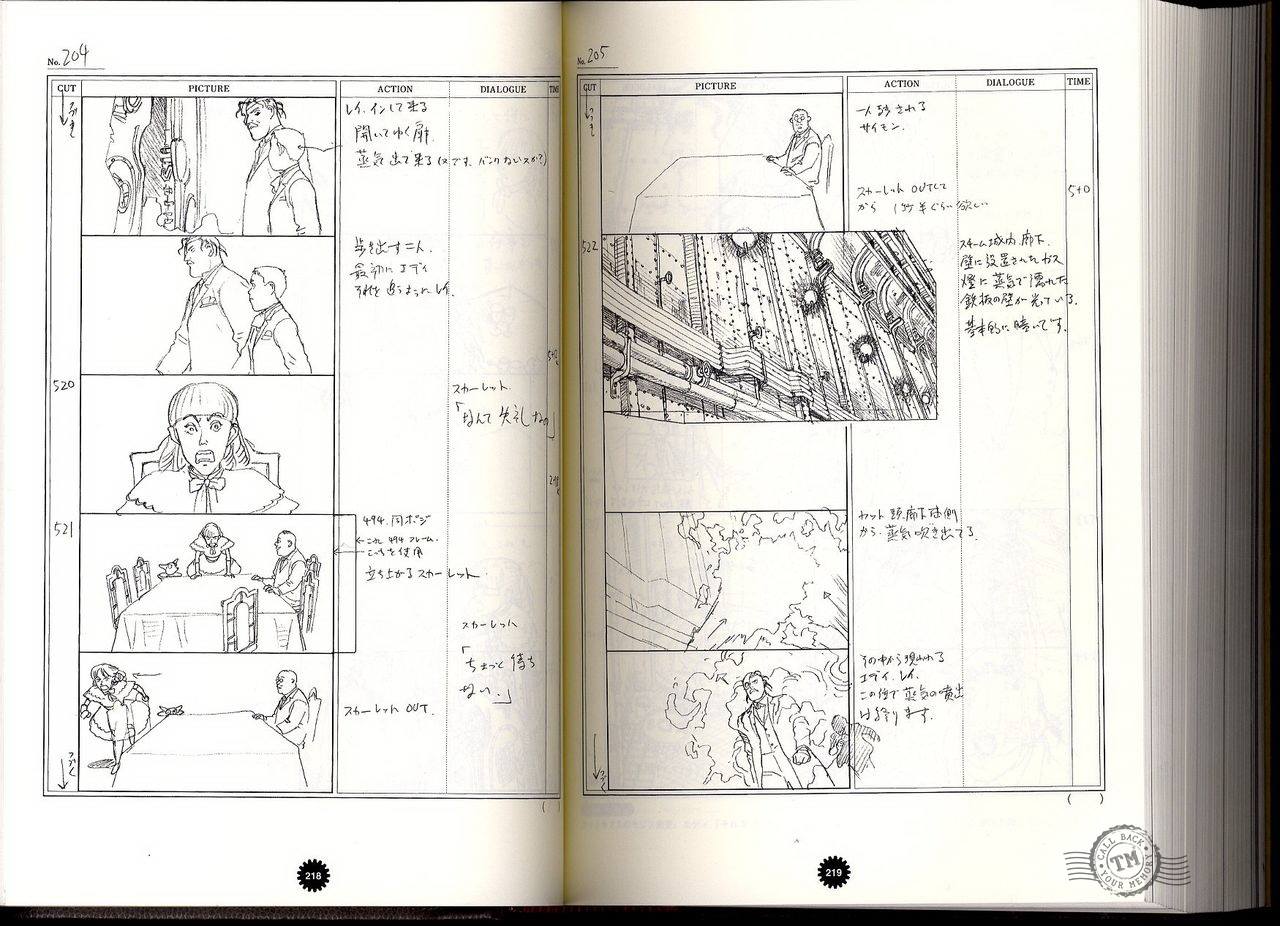 No. 204
CUT PICTURE ACTION DIALOGUE TIME
つづき
レイ、インして来る
開いてゆく扉
蒸気出て来る
歩き出す二人.
最初にエディ
それを追うようにレイ.
520
スカーレット
「なんて失礼なの」
521
494.同ポジ
これ 494 フレーム.
こっちを使用
立ち上がるスカーレット.
スカーレット
「ちょっと待ち
なさい.」
スカーレット OUT.
つづく
218
No. 205
CUT PICTURE ACTION DIALOGUE TIME
つづき
一人残される
サイモン.
スカーレット OUTして
から 1秒半ぐらい欲しい
5+0
522
スチーム城内.廊下.
壁に設置されたガス
燈に蒸気で濡れた
鉄板の壁が光っている.
基本的に暗いです.
カット頭.廊下
から.蒸気吹き出てる.
その中から現われる
エディ.レイ.
この後で蒸気の噴出
は終ります.
つづく
( )
219
CALL BACK
TM
YOUR MEMORY